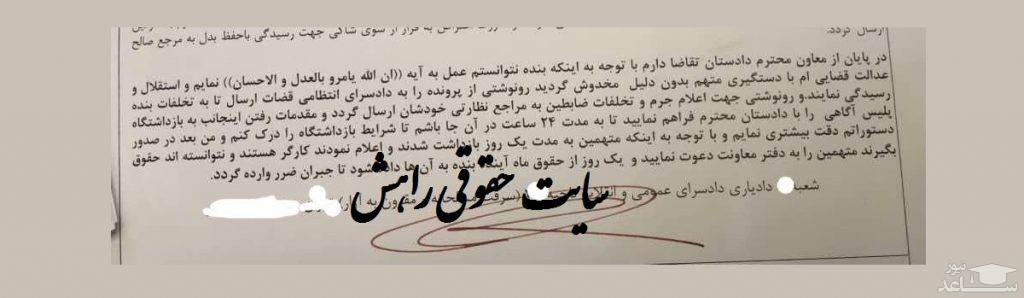 ارسال گردد.
اعتراض به قرار از سوی شاکی جهت رسیدگی باحفظ بدل به مرجع صالح
در پایان از معاون محترم دادستان تقاضا دارم با توجه به اینکه بنده نتوانستم عمل به آیه ((ان الله یامرو بالعدل و الاحسان)) نمایم و استقلال و
عدالت قضایی ام با دستگیری متهم بدون دلیل مخدوش گردید رونوشتی از پرونده را به دادسرای انتظامی قضات ارسال تا به تخلفات بنده
رسیدگی نمایند.و رونوشتی جهت اعلام جرم و تخلفات ضابطین به مراجع نظارتی خودشان ارسال گردد و مقدمات رفتن اینجانب به بازداشتگاه
پلیس آگاهی را با دادستان محترم فراهم نمایید تا به مدت ۲۴ ساعت در آن جا باشم تا شرایط بازداشتگاه را درک کنم و من بعد در صدور
دستوراتم دقت بیشتری نمایم و با توجه به اینکه متهمین به مدت یک روز بازداشت شدند و اعلام نمودند کارگر هستند و نتوانسته اند حقوق
بگیرند متهمین را به دفتر معاونت دعوت نمایید و یک روز از حقوق ماه آینده بنده به آن ها داده شود تا جبران ضرر وارده گردد.
شعبه دادیاری دادسرای عمومی و انقلاب
سایت حقوقی راهش
نیوز
ساعد